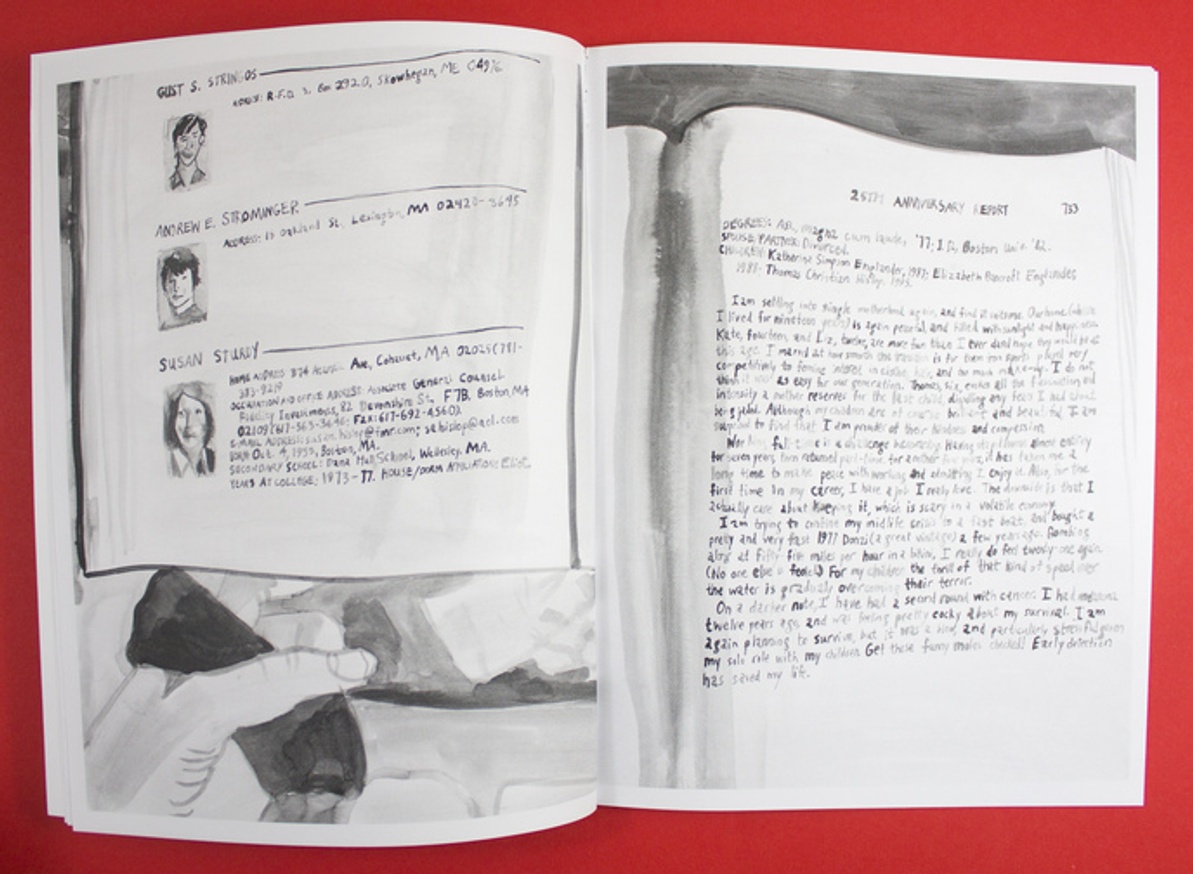 GUST S. STRINGOS
ADDRESS: R.F.D. 3, Box 2920, Skowhegan, ME 04976
ANDREW E. STROMINGER
ADDRESS: 13 Oakland St., Lexington, MA 02420-3695
SUSAN STURDY
HOME ADDRESS: 874 Ave, Cohasset, MA 02025 (781-
383-9219
OCCUPATION AND OFFICE ADDRESS: Associate General Counsel
Fidelity Investments, 82 Devonshire St, F7B, Boston, MA
02109 (617-563-3646; FAX: 617-692-4560).
E-MAIL ADDRESS: susan.hislop@fmr.com; sehislop@aol.com
BORN Oct. 4, 1955, Boston, MA.
SECONDARY SCHOOL: Dana Hall School, Wellesley, MA.
YEARS AT COLLEGE: 1973-77. HOUSE/DORM AFFILIATION: Eliot.
25TH ANNIVERSARY REPORT 753
DEGREES: A.B., magna cum laude, '77; J.D., Boston Univ. '82.
SPOUSE/PARTNER: Divorced.
CHILDREN: Katherine Simpson Englander, 1987; Elizabeth Bancroft Englander,
1989; Thomas Christian Hislop, 1995.
I am settling into single motherhood again, and find it welcome. Our home (which
I lived for nineteen years) is again peaceful and filled with sunlight and happiness.
Kate, fourteen, and Liz, twelve, are more fun than I ever dared hope they would be at
this age. I marvel at how smooth the transition is for them from sports played very
competitively to foming interest in clothes, hair, and too much make-up. I do not
think it was as easy for our generation. Thomas, six, evokes all the fascination and
intensity a mother reserves for the last child, dispelling any fears I had about
being jaded. Although my children are of course brilliant and beautiful I am
surprised to find that I am proudest of their kindness and compassion.
Working full-time is a challenge Having stayed home almost entirely
for seven years, then returned part-time for another few years, it has taken me a
long time to make peace with working and admitting I enjoy it. Also, for the
first time in my career, I have a job I really love. The downside is that I
actually care about keeping it, which is scary in a volatile economy.
I am trying to confine my midlife crisis to a fast boat, and bought a
pretty and very fast 1977 Donzi (a great vintage) a few years ago. Bombing
along at fifty-five miles per hour in a bikini, I really do feel twenty-one again.
(No one else is fooled) For my children the thrill of that kind of speed over
the water is gradually overcoming their terror.
On a darker note, I have had a second round with cancer. I had melanoma
twelve years ago, and was feeling pretty cocky about my survival. I am
again planning to survive, but it was a blow, and particularly stressful given
my solo role with my children. Get those funny moles checked! Early detection
has saved my life.